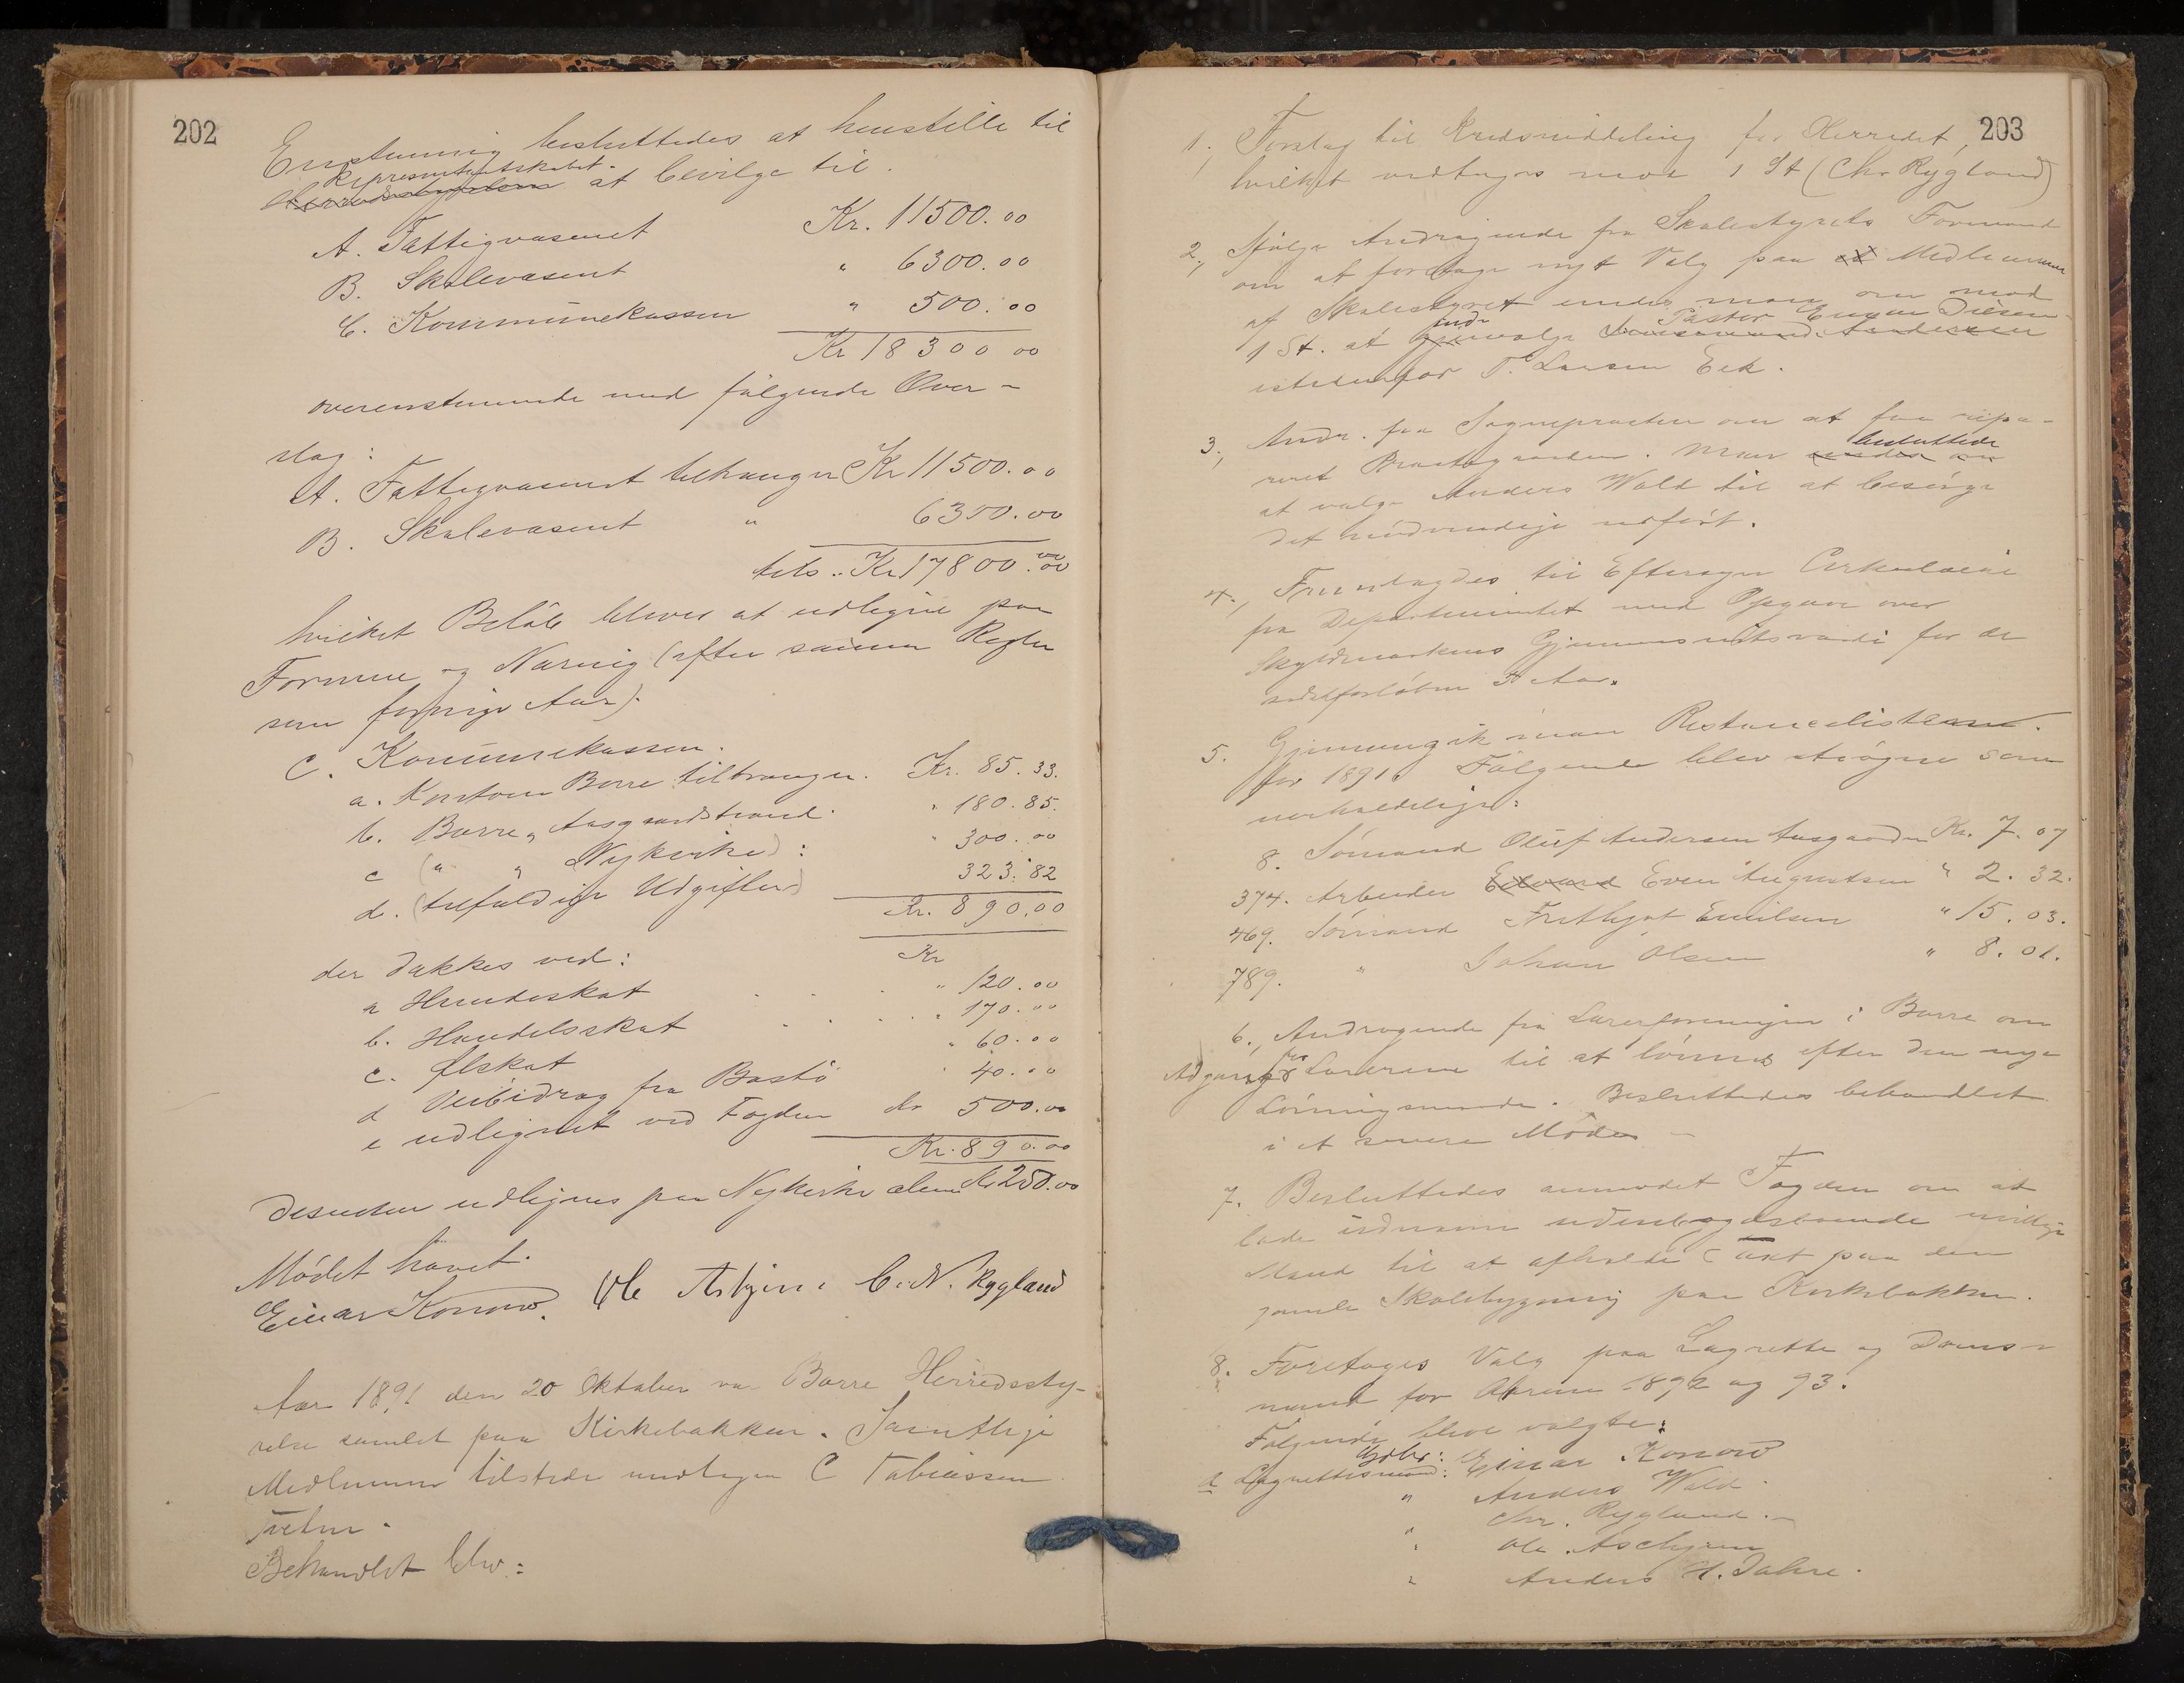 202
Enstemmig besluttedes at henstille til
Repræsentantskabet
Herredsstyrelsen at bevilge til.
A. Fattigvæsenet Kr. 11500.00
B. Skolevæsent " 6300.00
C. Kommunekassen " 500.00
Kr 18300 00
overenstemmende med følgende Over-
slag:
A. Fattigvæsenet tiltrænger Kr 11500.00
B. Skolevæsent " 6300.00
tils.. Kr 17800.00
hvilket Beløb bliver at udligne paa
Formue og Næring (efter samme Regler
som forrige Aar).
C. Kommunekassen.
a. Horten Borre tiltrænger. Kr. 85.33.
b. Borre " Aasgaardstrand. " 180.85.
c (" " Nykirke): " 300.00
d. (tilfældige Udgifter) 323.82
Kr. 890.00
der dækkes ved: Kr
a Hundeskat " 120.00
b. Handelsskat " 170.00
c. Ølskat " 60.00
d Veibidrag fra Bastö " 40.00
e udlignet ved Fogden Kr 500.00
Kr. 890.00
Desuden udlignes paa Nykirke alene Kr 250.00
Mødet hævet.
Einar Konow. Ole Asbjørn. C. N. Rygland
Aar 1891 den 20 Oktober var Borre Herredssty-
relse samlet paa Kirkebakken. Samtlige
Medlemmer tilstede undtagen C Tobiassen
Behandlet blev:
203
1., Forslag til Kredsinddeling for Herredet,
hvilket vedtoges mod 1 St (Chr Rygland)
2., Ifølge Andragende fra Skolestyrets Formand
om at foretage nyt Valg paa et Medlemmer
af Skolestyret enedes man om mod
1 St. at indvælge Pastor Diesen
istedenfor T. Larsen Eek.
3., Andr. fra Sognepræsten om at faa repa-
reret Præstegaarden. Man besluttede
at vælge Anders Wold til at besørge
det nødvendige udført.
4., Fremlagdes til Eftersyn Cirkulære
fra Departementet med Opgave over
Skyldmarkens Gjennemsnitsværdi for de
sidstforløbne 5 Aar.
5. Gjennemgik man Restancelisten
for 1891. Følgende blev strøgne som
uerholdelige:
8. Sømand Oluf Andersen Aasgaarden Kr. 7.07
374. Arbeider Edvard Even Augustsen " 2.32.
469. Sømand Frithjof Emilsen " 15.03.
789. " Johan Olsen " 8.01.
6., Andragende fra Lærerforeningen i Borre om
Adgang for Lærerne til at lønnes efter den nye
Lønningsmaade. Besluttedes behandlet
i et senere Møde –
7. Besluttedes anmodet Fogden om at
lade udnævne udenbygdsboende uvillige
Mænd til at afholde Taxt paa den
gamle Skolebygning paa Kirkebakken.
8. Foretoges Valg paa Lagrette og Doms-
mænd for Aarene 1892 og 93.
Følgende bleve valgte:
a Lagrettesmænd: Gdbr: Einar Konow
" Anders Wold
" Chr. Rygland.
" Ole Asbjørn
" Anders H. Jahre.